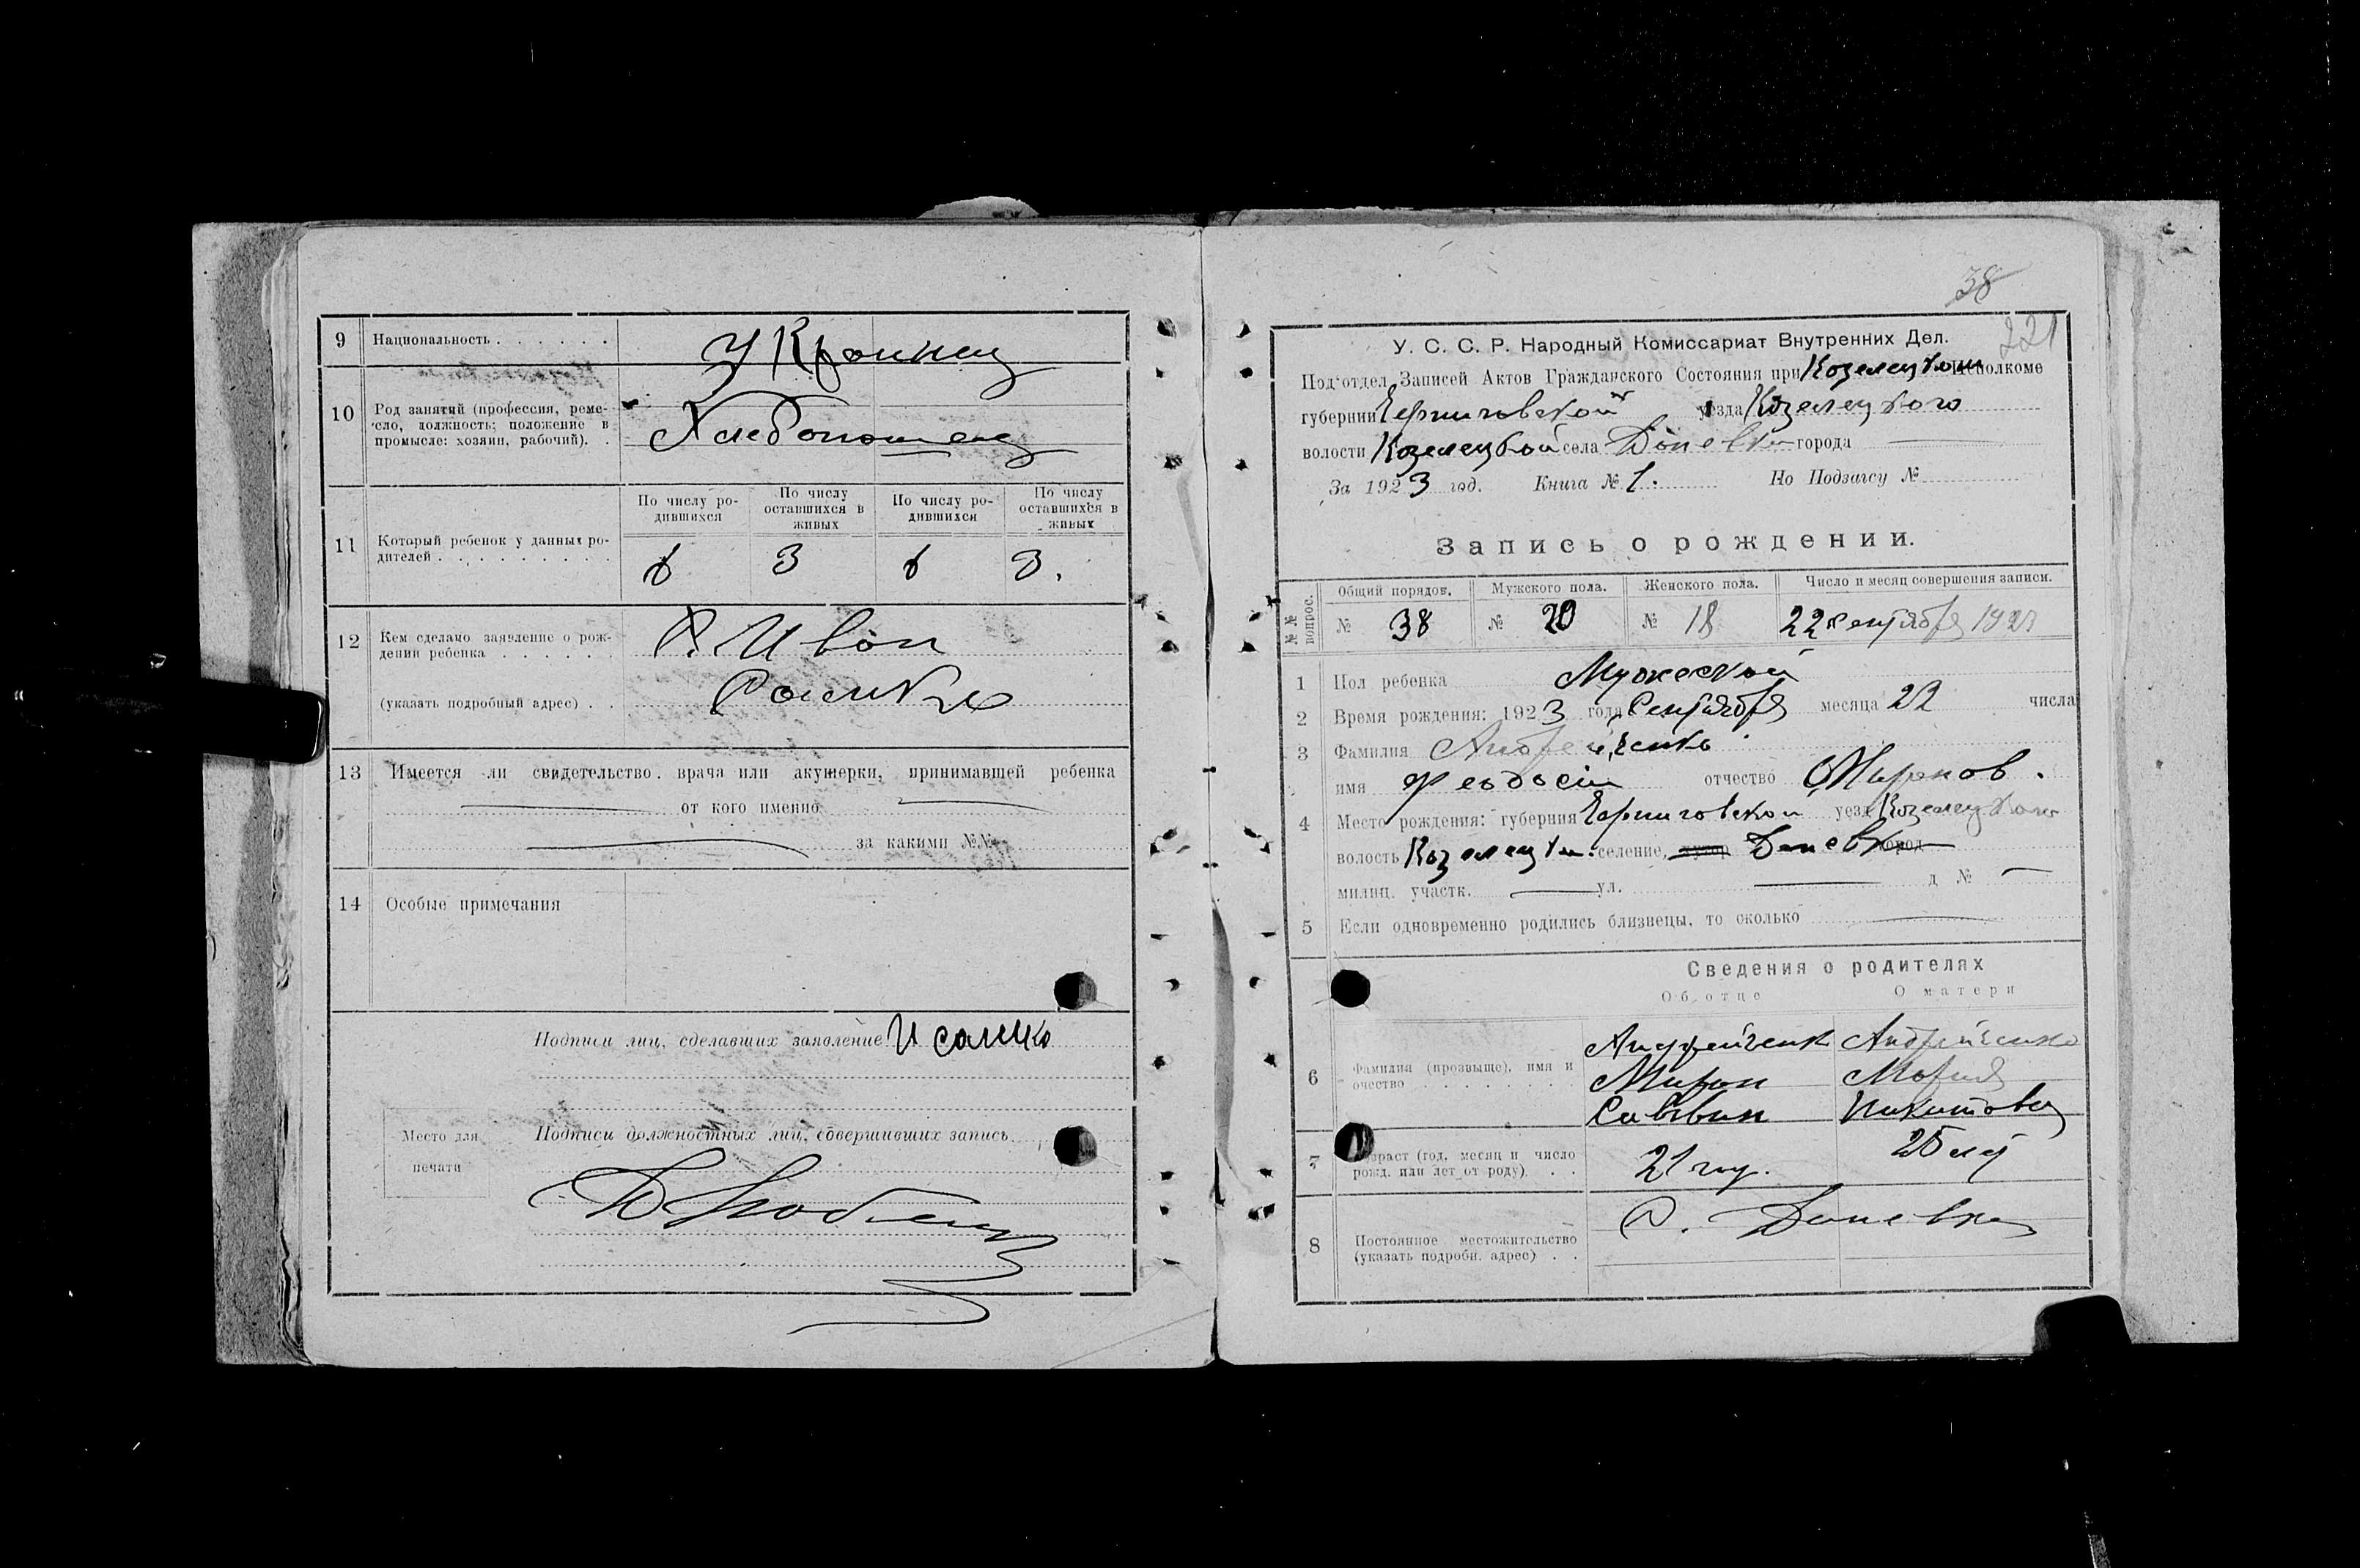 9 Национальность . . . . . . Украинец
10 Род занятий (профессия, реме-
сло, должность; положение в
промысле: хозяин, рабочий). .
Хлебопашец
По числу ро-
дившихся
По числу
оставшихся в
живых
По числу ро-
дившихся
По числу
оставшихся в
живых
11 Который ребенок у данных ро-
дителей . . . . . . . . .
3 3.
12 Кем сделано заявление о рож-
дении ребенка . . . . . .
Иван
(указать подробный адрес) . .
13 Имеется ли свидетельство врача или акушерки, принимавшей ребенка
от кого именно
за какими №№
14 Особые примечания
Подписи лиц, сделавших заявление И
Место для
печати
Подписи должностных лиц, совершивших запись
38
221
У. С. С. Р. Народный Комиссариат Внутренних Дел.
Под‘отдел Записей Актов Гражданского Состояния при Козелецком исполкоме
губернии Черниговской уезда Козелецкого
волости Козелецкой села Даневки города
За 1923 год. Книга № 1. По Подзагсу №
Запись о рождении.
№№ вопрос.
Общий порядов. Мужского пола. Женского пола. Число и месяц совершения записи.
№ 38 № 20 № 18 22 сентября 1923
1 Пол ребенка Мужской
2 Время рождения: 1923 года Сентября месяца 22 числа
3 Фамилия Андрейченко
имя Феодосій отчество Миронов.
4 Место рождения: губерния Черниговской уезд Козелецкого
волость Козелецк. селение, хутор Даневка город
милиц. участк. ул. д №
5 Если одновременно родились близнецы, то сколько
Сведения о родителях
Об отце О матери
6 Фамилия (прозвище), имя и
очество . . . . . . . .
Андрейченк Андрейченко
Мирон Мария
Саввин Никитовна
7 Возраст (год, месяц и число
рожд. или лет от роду) . .
21 год. 25 лет
8 Постоянное местожительство
(указать подробн. адрес) . .
с. Даневка